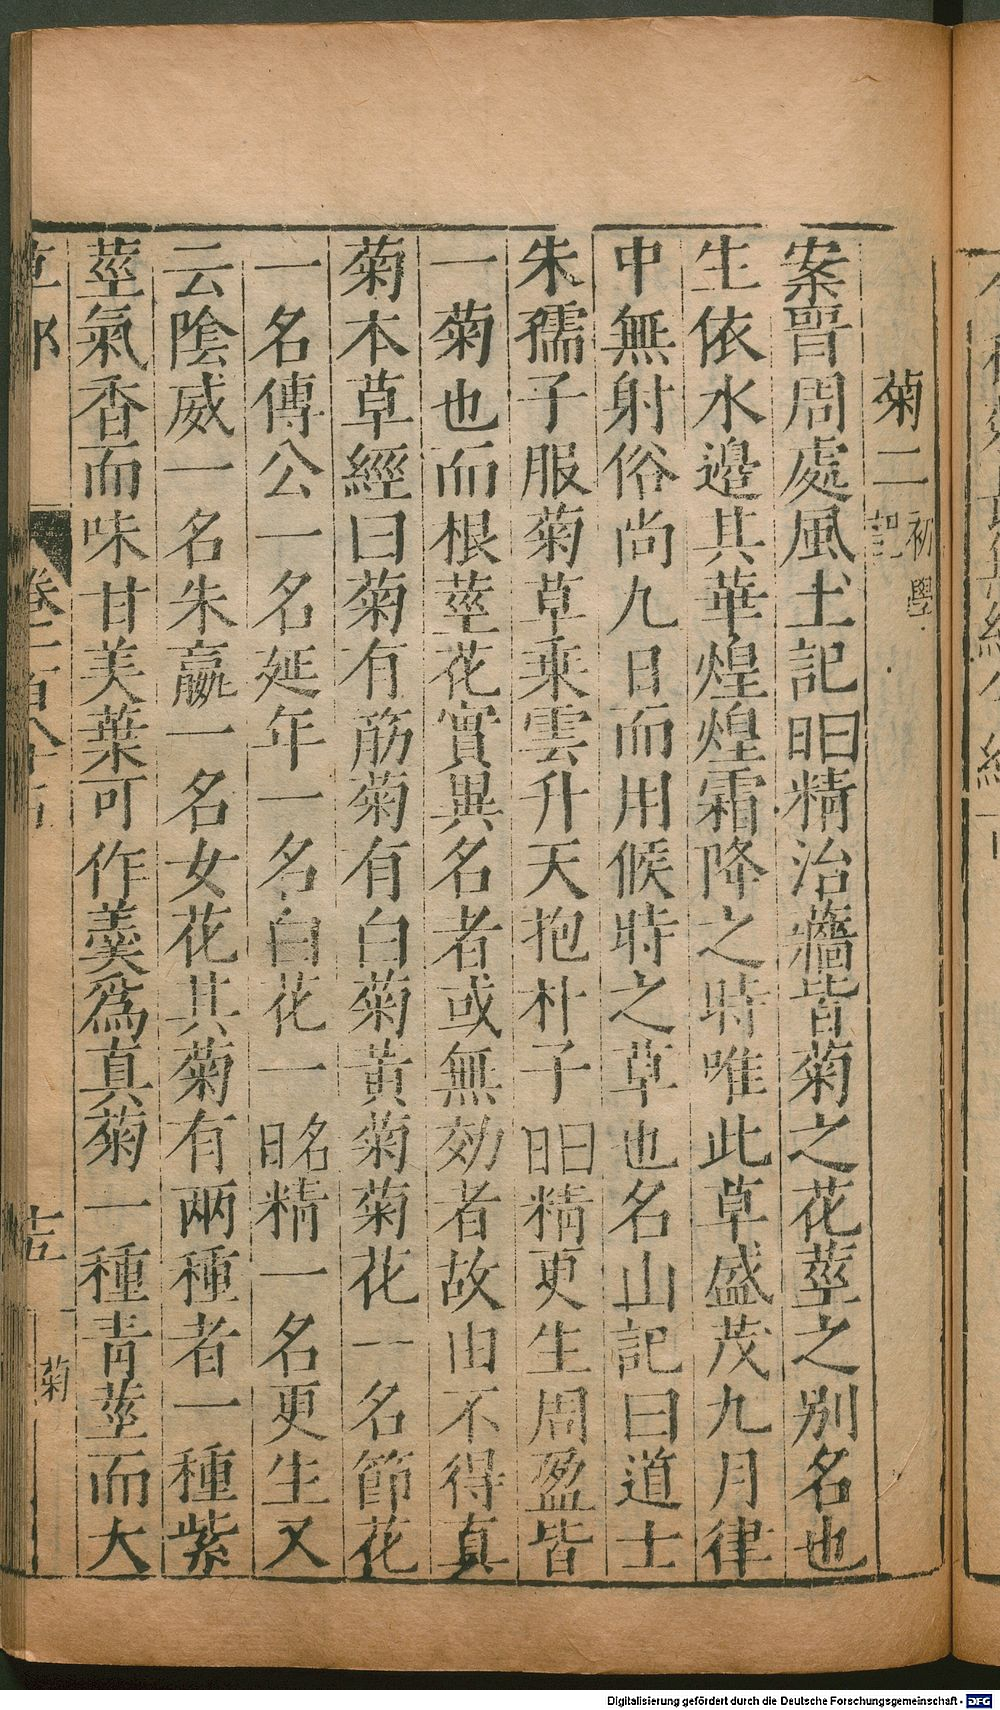 菊二初學記
案晋周處風土記日精治蘠皆菊之花莖之别名也
生依水邊其華煌煌霜降之時唯此草盛茂九月律
中無射俗尚九日而用候時之草也名山記曰道士
朱孺子服菊草乘雲升天抱朴子曰日精更生周盈皆
一菊也而根莖花實異名者或無効者故由不得真
菊本草經曰菊有筋菊有白菊黄菊菊花一名節花
一名傳公一名延年一名白花一名日精一名更生又
云陰威一名朱嬴一名女花其菊有兩種者一種紫
莖氣香而味甘美葉可作羹爲真菊一種青莖而大
菊
Digitalisierung gefördert durch die Deutsche Forschungsgemeinschaft - DFG